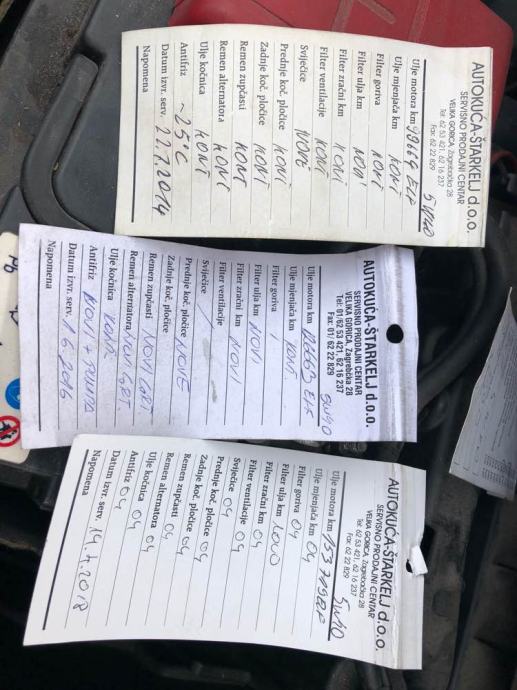 AUTOKUĆA-ŠTARKELJ d.o.o.
SERVISNO PRODAJNI CENTAR
VELIKA GORICA, Zagrebačka 28
Tel: 62 53 421, 62 16 237
Fax: 62 22 829
5W40
Ulje motora km 98669 ELF
Ulje mjenjača km KONT
Filter goriva km NOVI
Filter ulja km NOVI
Filter zračni km KONT
Filter ventilacije KONT
Svijećice NOVE
Prednje koč. pločice KONT
Zadnje koč. pločice KONT
Remen zupčasti KONT
Remen alternatora KONT
Ulje kočnica KONT
Antifriz ~25°C
Datum izvr. serv. 22.7.2014
Napomena
AUTOKUĆA-ŠTARKELJ d.o.o.
SERVISNO PRODAJNI CENTAR
VELIKA GORICA, Zagrebačka 28
Tel: 01/62 53 421, 62 16 237
Fax: 01/ 62 22 829
5W40
Ulje motora km ELF
Ulje mjenjača km KONT
Filter goriva km /
Filter ulja km NOVI
Filter zračni km NOVI
Filter ventilacije
Svijećice /
Prednje koč. pločice NOVE
Zadnje koč. pločice
Remen zupčasti NOVI GRT
Remen alternatora NOVI GRT.
Ulje kočnica KONT
Antifriz NOVI + PUMPA
Datum izvr. serv. 1.6.2016
Napomena
AUTOKUĆA-ŠTARKELJ d.o.o.
SERVISNO PRODAJNI CENTAR
VELIKA GORICA, Zagrebačka 28
Tel: 62 53 421, 62 16 237
Fax: 62 22 829
5W40
Ulje motora km
Ulje mjenjača km 04
Filter goriva km 04
Filter ulja km NOVO
Filter zračni km 04
Filter ventilacije 04
Svijećice 04
Prednje koč. pločice 04
Zadnje koč. pločice 04
Remen zupčasti 04
Remen alternatora 04
Ulje kočnica 04
Antifriz 04
Datum izvr. serv. 19.4.2018
Napomena